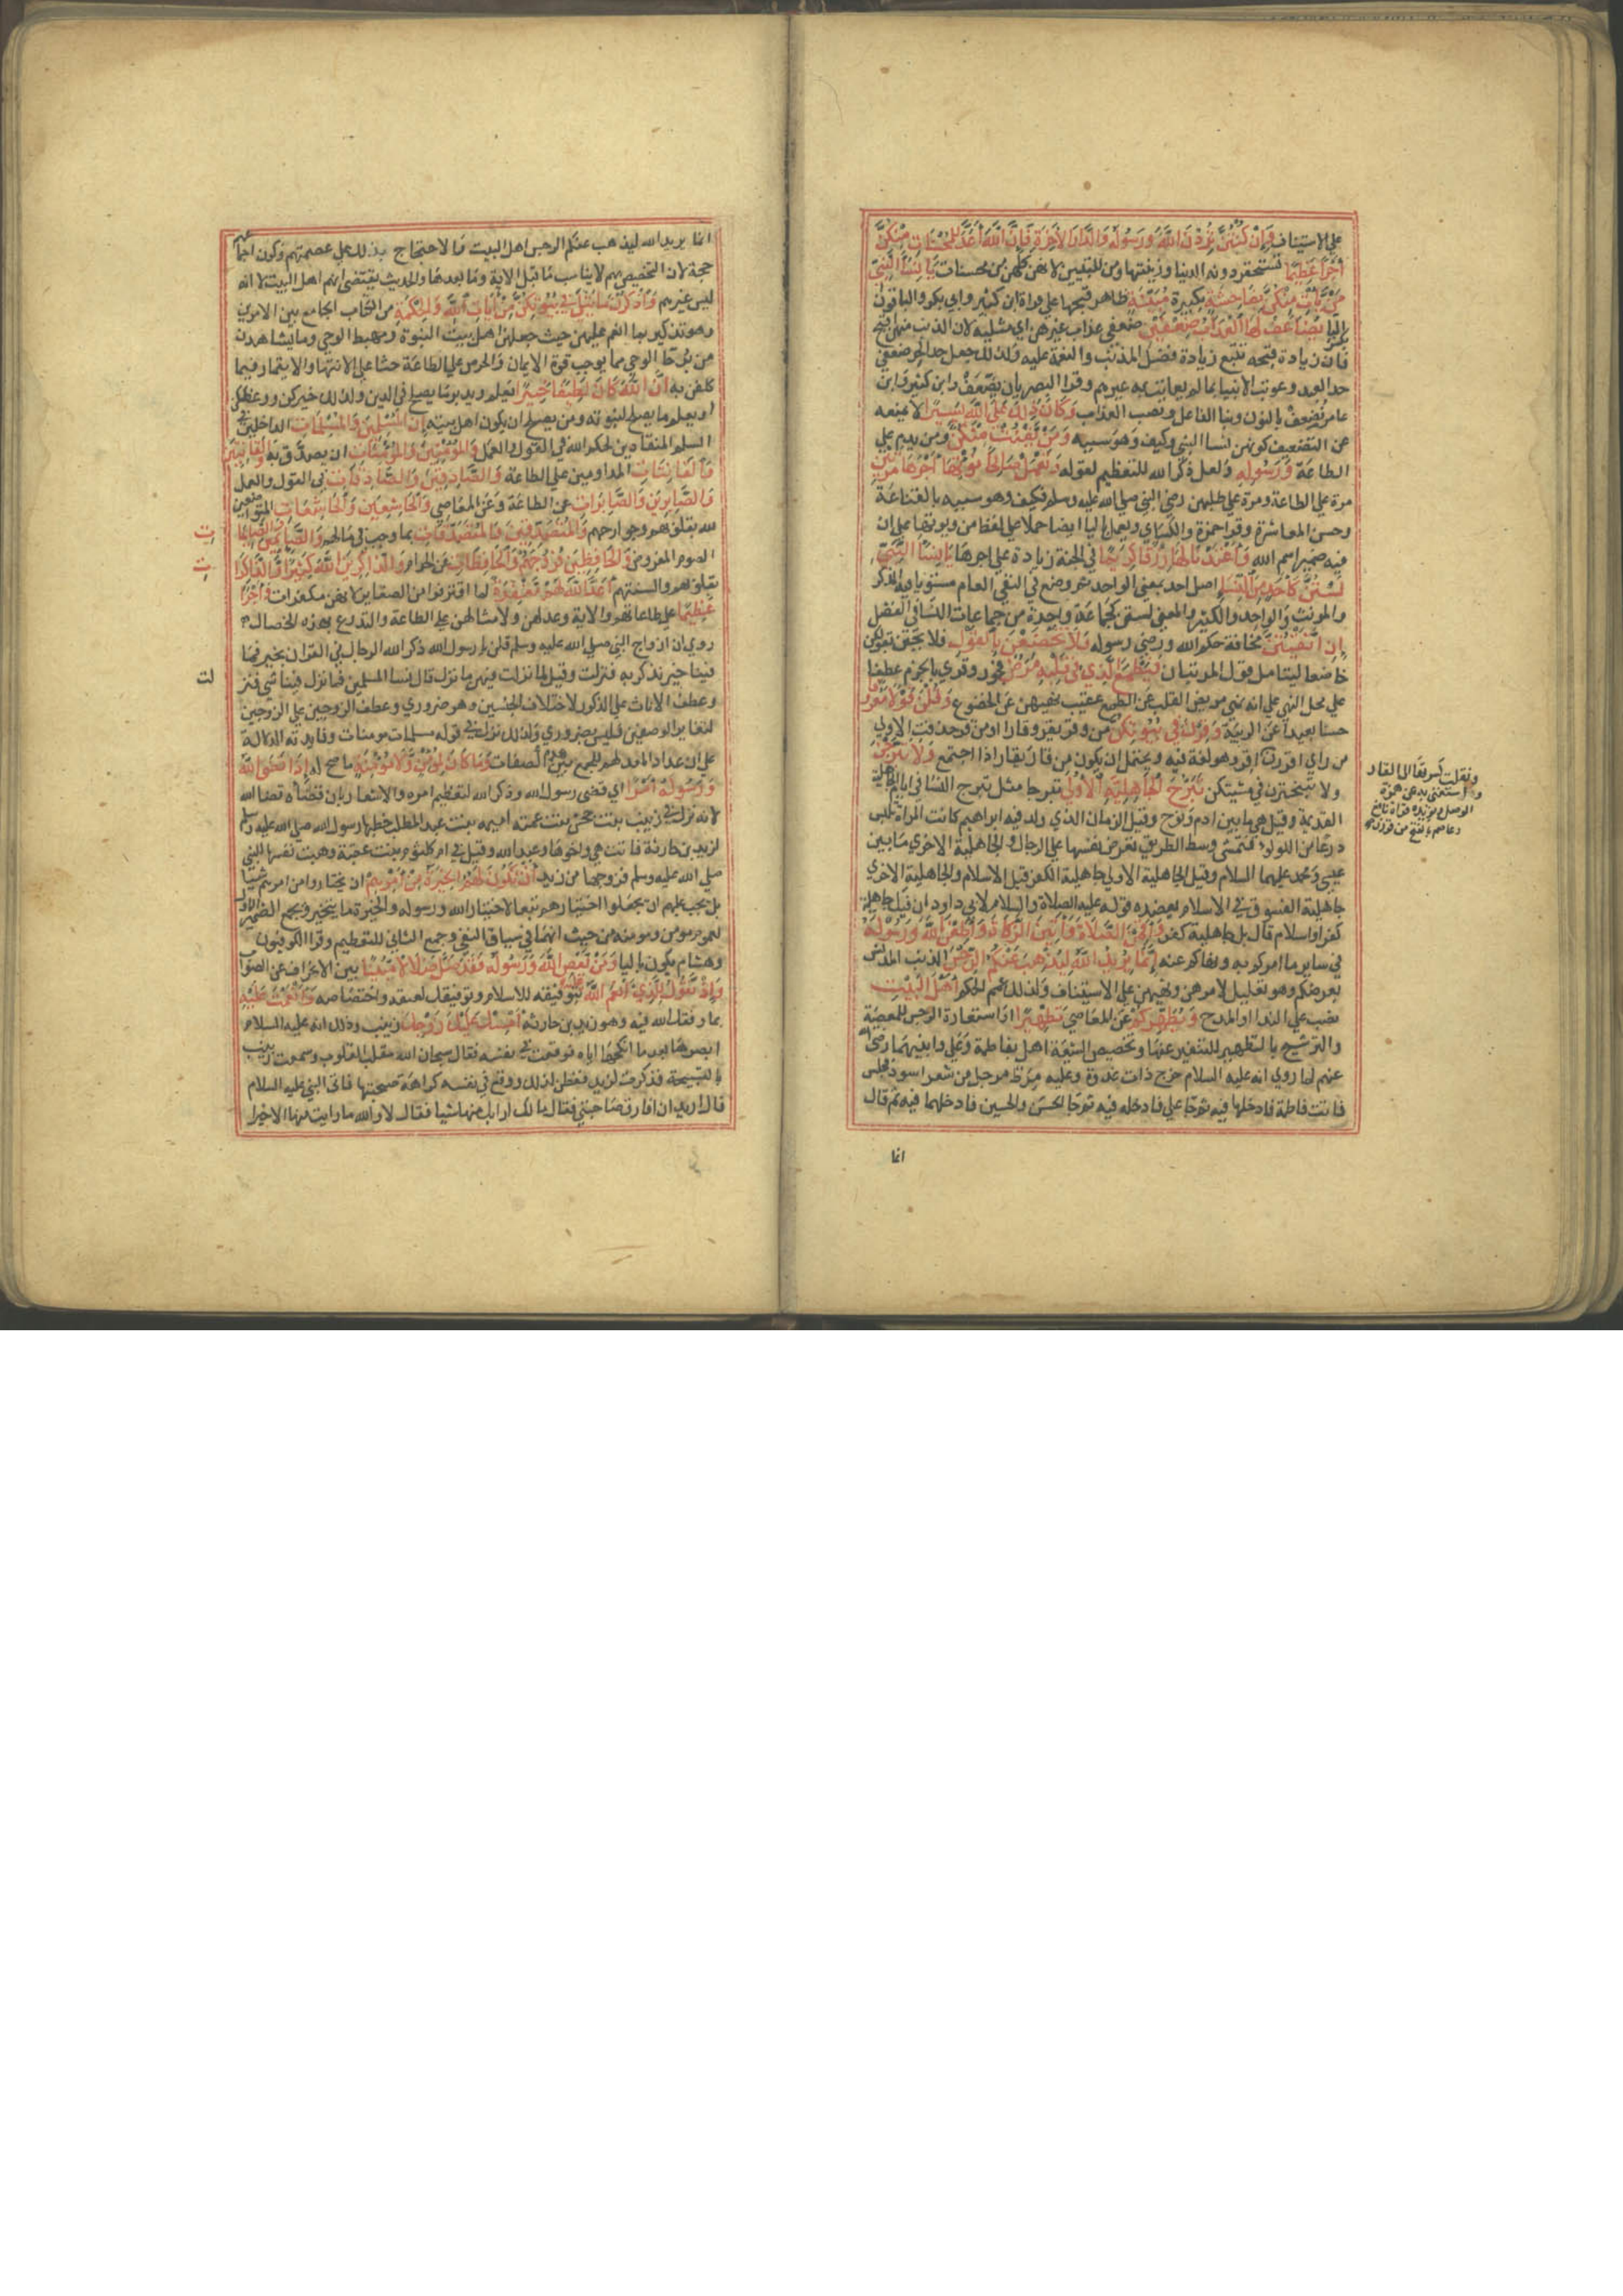 علي الاستيناف وَاِنْ كُنْتُنَّ تُرِدْنَ اللّٰهَ وَرَسُولَهُ وَالدَّارَ الْاٰخِرَةَ فَاِنَّ اللّٰهَ اَعَدَّ لِلْمُحْسِنَاتِ مِنْكُنَّ
اَجْرًا عَظِيمًا تستحقر دونه الدنيا وزينتها ومن للتبيين لانهن كلهن كن محسنات يَا نِسَاءَ النَّبِيِّ
مَنْ يَأْتِ مِنْكُنَّ بِفَاحِشَةٍ بكبيرة مُبَيِّنَةٍ ظاهر قبحها علي قراة ابن كثير وابي بكر والباقون
بكسر اليا يُضَاعَفْ لَهَا الْعَذَابُ ضِعْفَيْنِ ضعفي عذاب غيرهن اي مثليه لان الذنب منهن اقبح
فان زيادة قبحه تتبع زيادة فضل المذنب والنعمة عليه ولذلك جعل حد الحر ضعفي
حد العبد وعوتب الانبيا بما لم يعاتب به غيرهم وقرا البصريان يُضَعَّفْ وابن كثير وابن
عامر نُضَعِّفْ بالنون وبنا الفاعل ونصب العذاب وَكَانَ ذٰلِكَ عَلَي اللّٰهِ يَسِيرًا لا يمنعه
عن التضعيف كونهن انسا النبي وكيف وهو سببه وَمَنْ يَقْنُتْ مِنْكُنَّ ومن يدم علي
الطاعة وَرَسُولِهِ ولعل ذكر الله للتعظيم لقوله وَتَعْمَلْ صَالِحًا نُؤْتِهَا اَجْرَهَا مَرَّتَيْنِ
مرة علي الطاعة ومرة علي طلبهن رضي النبي صلي الله عليه وسلم بالقناعة
وحسن المعاشرة وقرا حمزة والكسائي ويعمل باليا ايضا حملا علي لفظ من ويوتها علي ان
فيه ضمير اسم الله وَاَعْتَدْنَا لَهَا رِزْقًا كَرِيمًا في الجنة زيادة علي اجرها يَا نِسَاءَ النَّبِيِّ
لَسْتُنَّ كَاَحَدٍ مِنَ النِّسَاءِ اصل احد بمعني الواحد ثم وضع في النفي العام مستويا فيه المذكر
والمونث والواحد والكثير والمعني لستن كجماعة واحدة من جماعات النسا في الفضل
اِنِ اتَّقَيْتُنَّ مخالفة حكم الله ورضي رسوله فَلَا تَخْضَعْنَ بِالْقَوْلِ فلا يجئن بقولكن
خاضعا لينا مثل قول المريبات فَيَطْمَعَ الَّذِي فِي قَلْبِهِ مَرَضٌ فجور وقري بالجزم عطفا
علي محل النهي علي انه نهي مريض القلب عن الطمع عقيب نهيهن عن الخضوع وَقُلْنَ قَوْلًا مَعْرُوفًا
حسنا بعيدا عن الريبة وَقَرْنَ فِي بُيُوتِكُنَّ من وقر يقر وقارا او من قر حذفت الاولي
من راي اقررن اقر وهو لغة فيه ويحتمل ان يكون من قار يقار اذا اجتمع وَلَا تَبَرَّجْنَ
ولا تتبخترن في مشيتكن تَبَرُّجَ الْجَاهِلِيَّةِ الْاُولَي تبرجا مثل تبرج النسا في ايام الجاهلية
القديمة وقيل هي ما بين ادم ونوح وقيل الزمان الذي ولد فيه ابراهيم كانت المراة تلبس
درعا من اللولو فتمشي وسط الطريق تعرض نفسها علي الرجال والجاهلية الاخري ما بين
عيسي ومحمد عليهما السلام وقيل الجاهلية الاولي جاهلية الكفر قبل الاسلام والجاهلية الاخري
جاهلية الفسوق في الاسلام يعضده قوله عليه الصلاة والسلام لابي داود ان فيك جاهلية
كفر او اسلام قال بل جاهلية كفر وَاَقِمْنَ الصَّلَاةَ وَاٰتِينَ الزَّكَاةَ وَاَطِعْنَ اللّٰهَ وَرَسُولَهُ
في ساير ما امركن به ونهاكم عنه اِنَّمَا يُرِيدُ اللّٰهُ لِيُذْهِبَ عَنْكُمُ الرِّجْسَ الذنب المدنس
لعرضكم وهو تعليل لامرهن ونهيهن علي الاستيناف ولذلك عمم الحكم اَهْلَ الْبَيْتِ
نصب علي الندا او المدح وَيُطَهِّرَكُمْ عن المعاصي تَطْهِيرًا واستعارة الرجس للمعصية
والترشيح بالتطهير للتنفير عنها وتخصيص الشيعة اهل بفاطمة وعلي وابنيهما رضي الله
عنهم لما روي انه عليه السلام خرج ذات غدوة وعليه مرط مرجل من شعر اسود فجلس
فاتت فاطمة فادخلها فيه ثم جا علي فادخله فيه ثم جا الحسن والحسين فادخلهما فيه ثم قال
انما
ونقلت كسرتها الي القاف
واستغني به عن همزة
الوصل ويويده قراة نافع
وعاصم بالفتح من قررن
انما يريد الله ليذهب عنكم الرجس اهل البيت والاحتجاج بذلك علي عصمتهم وكون اجماعهم
حجة لان التخصيص بهم لا يناسب ما قبل الاية وما بعدها والحديث يقتضي انهم اهل البيت لا انه
ليس غيرهم وَاذْكُرْنَ مَا يُتْلَي فِي بُيُوتِكُنَّ مِنْ اٰيَاتِ اللّٰهِ وَالْحِكْمَةِ من الكتاب الجامع بين الامرين
وهو تذكير بما انعم عليهن حيث جعلهن اهل بيت النبوة ومهبط الوحي وما يشاهدن
من برحا الوحي مما يوجب قوة الايمان والحرص علي الطاعة حثا علي الانتها والايتمار فيما
كلفن به اِنَّ اللّٰهَ كَانَ لَطِيفًا خَبِيرًا يعلم ويدبر ما يصلح في الدين ولذلك خيركن ووعظكن
او يعلم ما يصلح لنبوته ومن يصلح ان يكون اهل بيته اِنَّ الْمُسْلِمِينَ وَالْمُسْلِمَاتِ الداخلين في
السلم المنقادين لحكم الله في القول والعمل وَالْمُؤْمِنِينَ وَالْمُؤْمِنَاتِ ان يصدق به وَالْقَانِتِينَ
وَالْقَانِتَاتِ المداومين علي الطاعة وَالصَّادِقِينَ وَالصَّادِقَاتِ في القول والعمل
وَالصَّابِرِينَ وَالصَّابِرَاتِ عن الطاعة وعن المعاصي وَالْخَاشِعِينَ وَالْخَاشِعَاتِ المتواضعين
لله بقلوبهم وجوارحهم وَالْمُتَصَدِّقِينَ وَالْمُتَصَدِّقَاتِ بما وجب في مالهم وَالصَّائِمِينَ وَالصَّائِمَاتِ
الصوم المفروض وَالْحَافِظِينَ فُرُوجَهُمْ وَالْحَافِظَاتِ عن الحرام وَالذَّاكِرِينَ اللّٰهَ كَثِيرًا وَالذَّاكِرَاتِ
بقلوبهم والسنتهم اَعَدَّ اللّٰهُ لَهُمْ مَغْفِرَةً لما اقترفوا من الصغاير لانهن مكفرات وَاَجْرًا
عَظِيمًا علي طاعاتهم والاية وعد لهن ولامثالهن علي الطاعة والتدرع بهذه الخصال
روي ان ازواج النبي صلي الله عليه وسلم قلن يا رسول الله ذكر الله الرجال في القران بخير فما
فينا خير نذكر به فنزلت وقيل لما نزلت فيهن ما نزل قال نسا المسلمين فما نزل فينا شي فنزلت
وعطف الاناث علي الذكور لاختلاف الجنسين وهو ضروري وعطف الزوجين علي الزوجين
لتغاير الوصفين فليس بضروري ولذلك ترك في قوله مسلمات مومنات وفايدته الدلالة
علي ان اعداد المعد لهم للجمع بين هذه الصفات وَمَا كَانَ لِمُؤْمِنٍ وَلَا مُؤْمِنَةٍ ما صح له اِذَا قَضَي اللّٰهُ
وَرَسُولُهُ اَمْرًا اي قضي رسول الله وذكر الله لتعظيم امره والاشعار بان قضاه قضا الله
لانه نزل في زينب بنت جحش بنت عمته اميمة بنت عبد المطلب خطبها رسول الله صلي الله عليه وسلم
لزيد بن حارثة فابت هي واخوها عبد الله وقيل في ام كلثوم بنت عقبة وهبت نفسها للنبي
صلي الله عليه وسلم فزوجها من زيد اَنْ تَكُونَ لَهُمُ الْخِيَرَةُ مِنْ اَمْرِهِمْ ان يختاروا من امرهم شيا
بل يجب عليهم ان يجعلوا اختيارهم تبعا لاختيار الله ورسوله والخيرة ما يتخير وجمع الضمير الاول
لعموم مومن ومومنة من حيث انهما في سياق النفي وجمع الثاني للتعظيم وقرا الكوفيون
وهشام يكون باليا وَمَنْ يَعْصِ اللّٰهَ وَرَسُولَهُ فَقَدْ ضَلَّ ضَلَالًا مُبِينًا بين الانحراف عن الصواب
وَاِذْ تَقُولُ لِلَّذِي اَنْعَمَ اللّٰهُ عَلَيْهِ بتوفيقه للاسلام وتوفيقك لعتقه واختصاصه وَاَنْعَمْتَ عَلَيْهِ
بما وفقك الله فيه وهو زيد بن حارثة اَمْسِكْ عَلَيْكَ زَوْجَكَ زينب وذلك انه عليه السلام
ابصرها بعد ما انكحها اياه فوقعت في نفسه فقال سبحان الله مقلب القلوب وسمعت زينب
بالتسبيحة فذكرت لزيد ففطن لذلك ووقع في نفسه كراهة صحبتها فاتي النبي عليه السلام
قال اريد ان افارق صاحبتي فقال مالك ارابك منها شيا فقال لا والله ما رايت منها الا خيرا